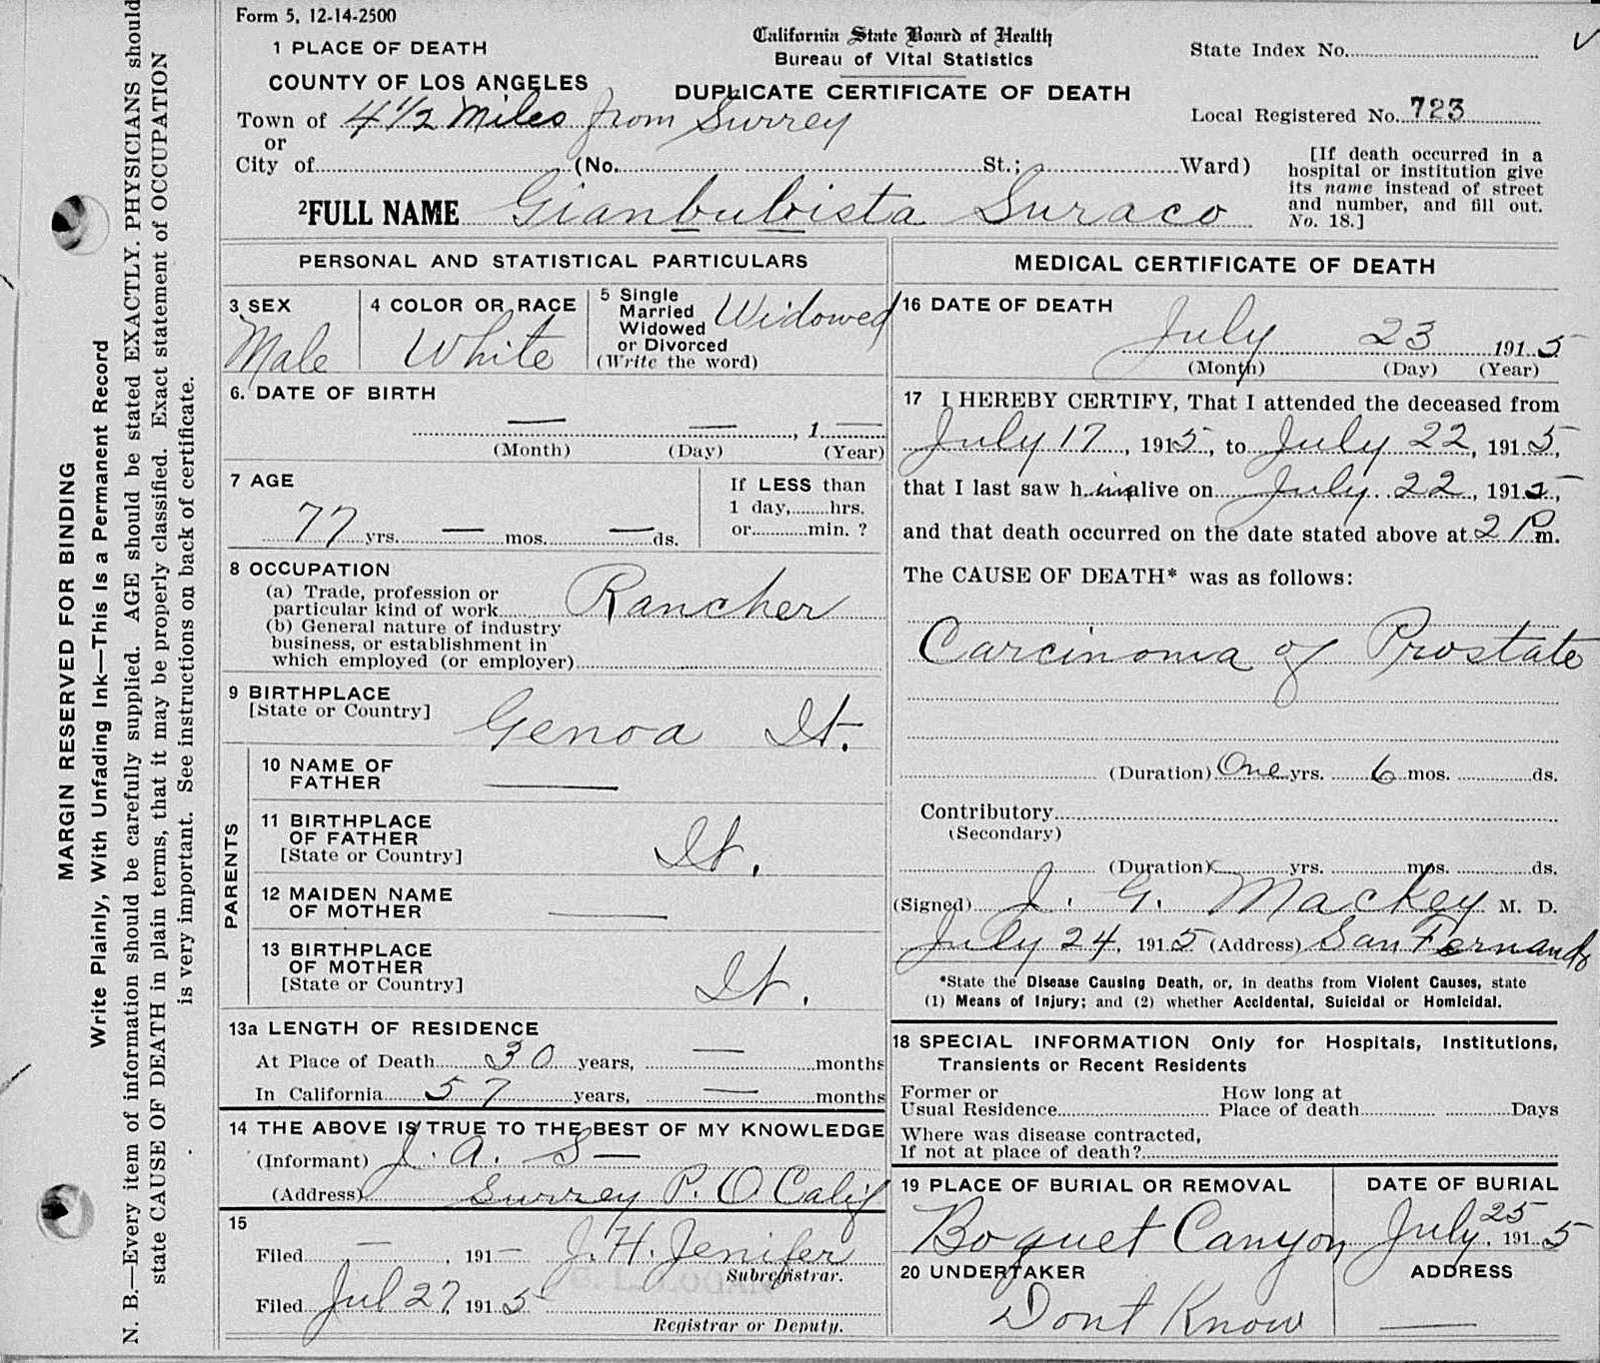 Form 5, 12-14-2500
1 PLACE OF DEATH
COUNTY OF LOS ANGELES
Town of 4 1/2 Miles from Surrey
or
City of (No. St.; Ward)
California State Board of Health
Bureau of Vital Statistics
DUPLICATE CERTIFICATE OF DEATH
State Index No.
Local Registered No. 723
[If death occurred in a
hospital or institution give
its name instead of street
and number, and fill out.
No. 18.]
2 FULL NAME Gianbubista Suraco
PERSONAL AND STATISTICAL PARTICULARS
3 SEX
Male
4 COLOR OR RACE
White
5 Single
Married
Widowed
or Divorced
(Write the word)
Widowed
6. DATE OF BIRTH
— — , 1 —
(Month) (Day) (Year)
7 AGE
77 yrs. — mos. — ds.
If LESS than
1 day, hrs.
or min. ?
8 OCCUPATION
(a) Trade, profession or
particular kind of work Rancher
(b) General nature of industry
business, or establishment in
which employed (or employer)
9 BIRTHPLACE
[State or Country] Genoa It.
PARENTS
10 NAME OF
FATHER —
11 BIRTHPLACE
OF FATHER
[State or Country] It.
12 MAIDEN NAME
OF MOTHER —
13 BIRTHPLACE
OF MOTHER
[State or Country] It.
13a LENGTH OF RESIDENCE
At Place of Death 30 years, — months
In California 57 years, — months
14 THE ABOVE IS TRUE TO THE BEST OF MY KNOWLEDGE
(Informant) J. A. S—
(Address) Surrey P. O Calif
15
Filed — , 191— J. H. Jenifer
Subregistrar.
Filed Jul 27, 1915
Registrar or Deputy.
MEDICAL CERTIFICATE OF DEATH
16 DATE OF DEATH
July 23 1915
(Month) (Day) (Year)
17 I HEREBY CERTIFY, That I attended the deceased from
July 17, 1915, to July 22, 1915,
that I last saw him alive on July 22, 1915,
and that death occurred on the date stated above at 2 Pm.
The CAUSE OF DEATH* was as follows:
Carcinoma of Prostate
(Duration) One yrs. 6 mos. ds.
Contributory
(Secondary)
(Duration) yrs. mos. ds.
(Signed) J. G. Mackey M. D.
July 24, 1915 (Address) San Fernando
*State the Disease Causing Death, or, in deaths from Violent Causes, state
(1) Means of Injury; and (2) whether Accidental, Suicidal or Homicidal.
18 SPECIAL INFORMATION Only for Hospitals, Institutions,
Transients or Recent Residents
Former or
Usual Residence
How long at
Place of death Days
Where was disease contracted,
If not at place of death?
19 PLACE OF BURIAL OR REMOVAL
Boquet Canyon
DATE OF BURIAL
July 25, 1915
20 UNDERTAKER
Dont Know
ADDRESS
—
MARGIN RESERVED FOR BINDING
Write Plainly, With Unfading Ink—This Is a Permanent Record
N. B.—Every item of information should be carefully supplied. AGE should be stated EXACTLY. PHYSICIANS should
state CAUSE OF DEATH in plain terms, that it may be properly classified. Exact statement of OCCUPATION
is very important. See instructions on back of certificate.